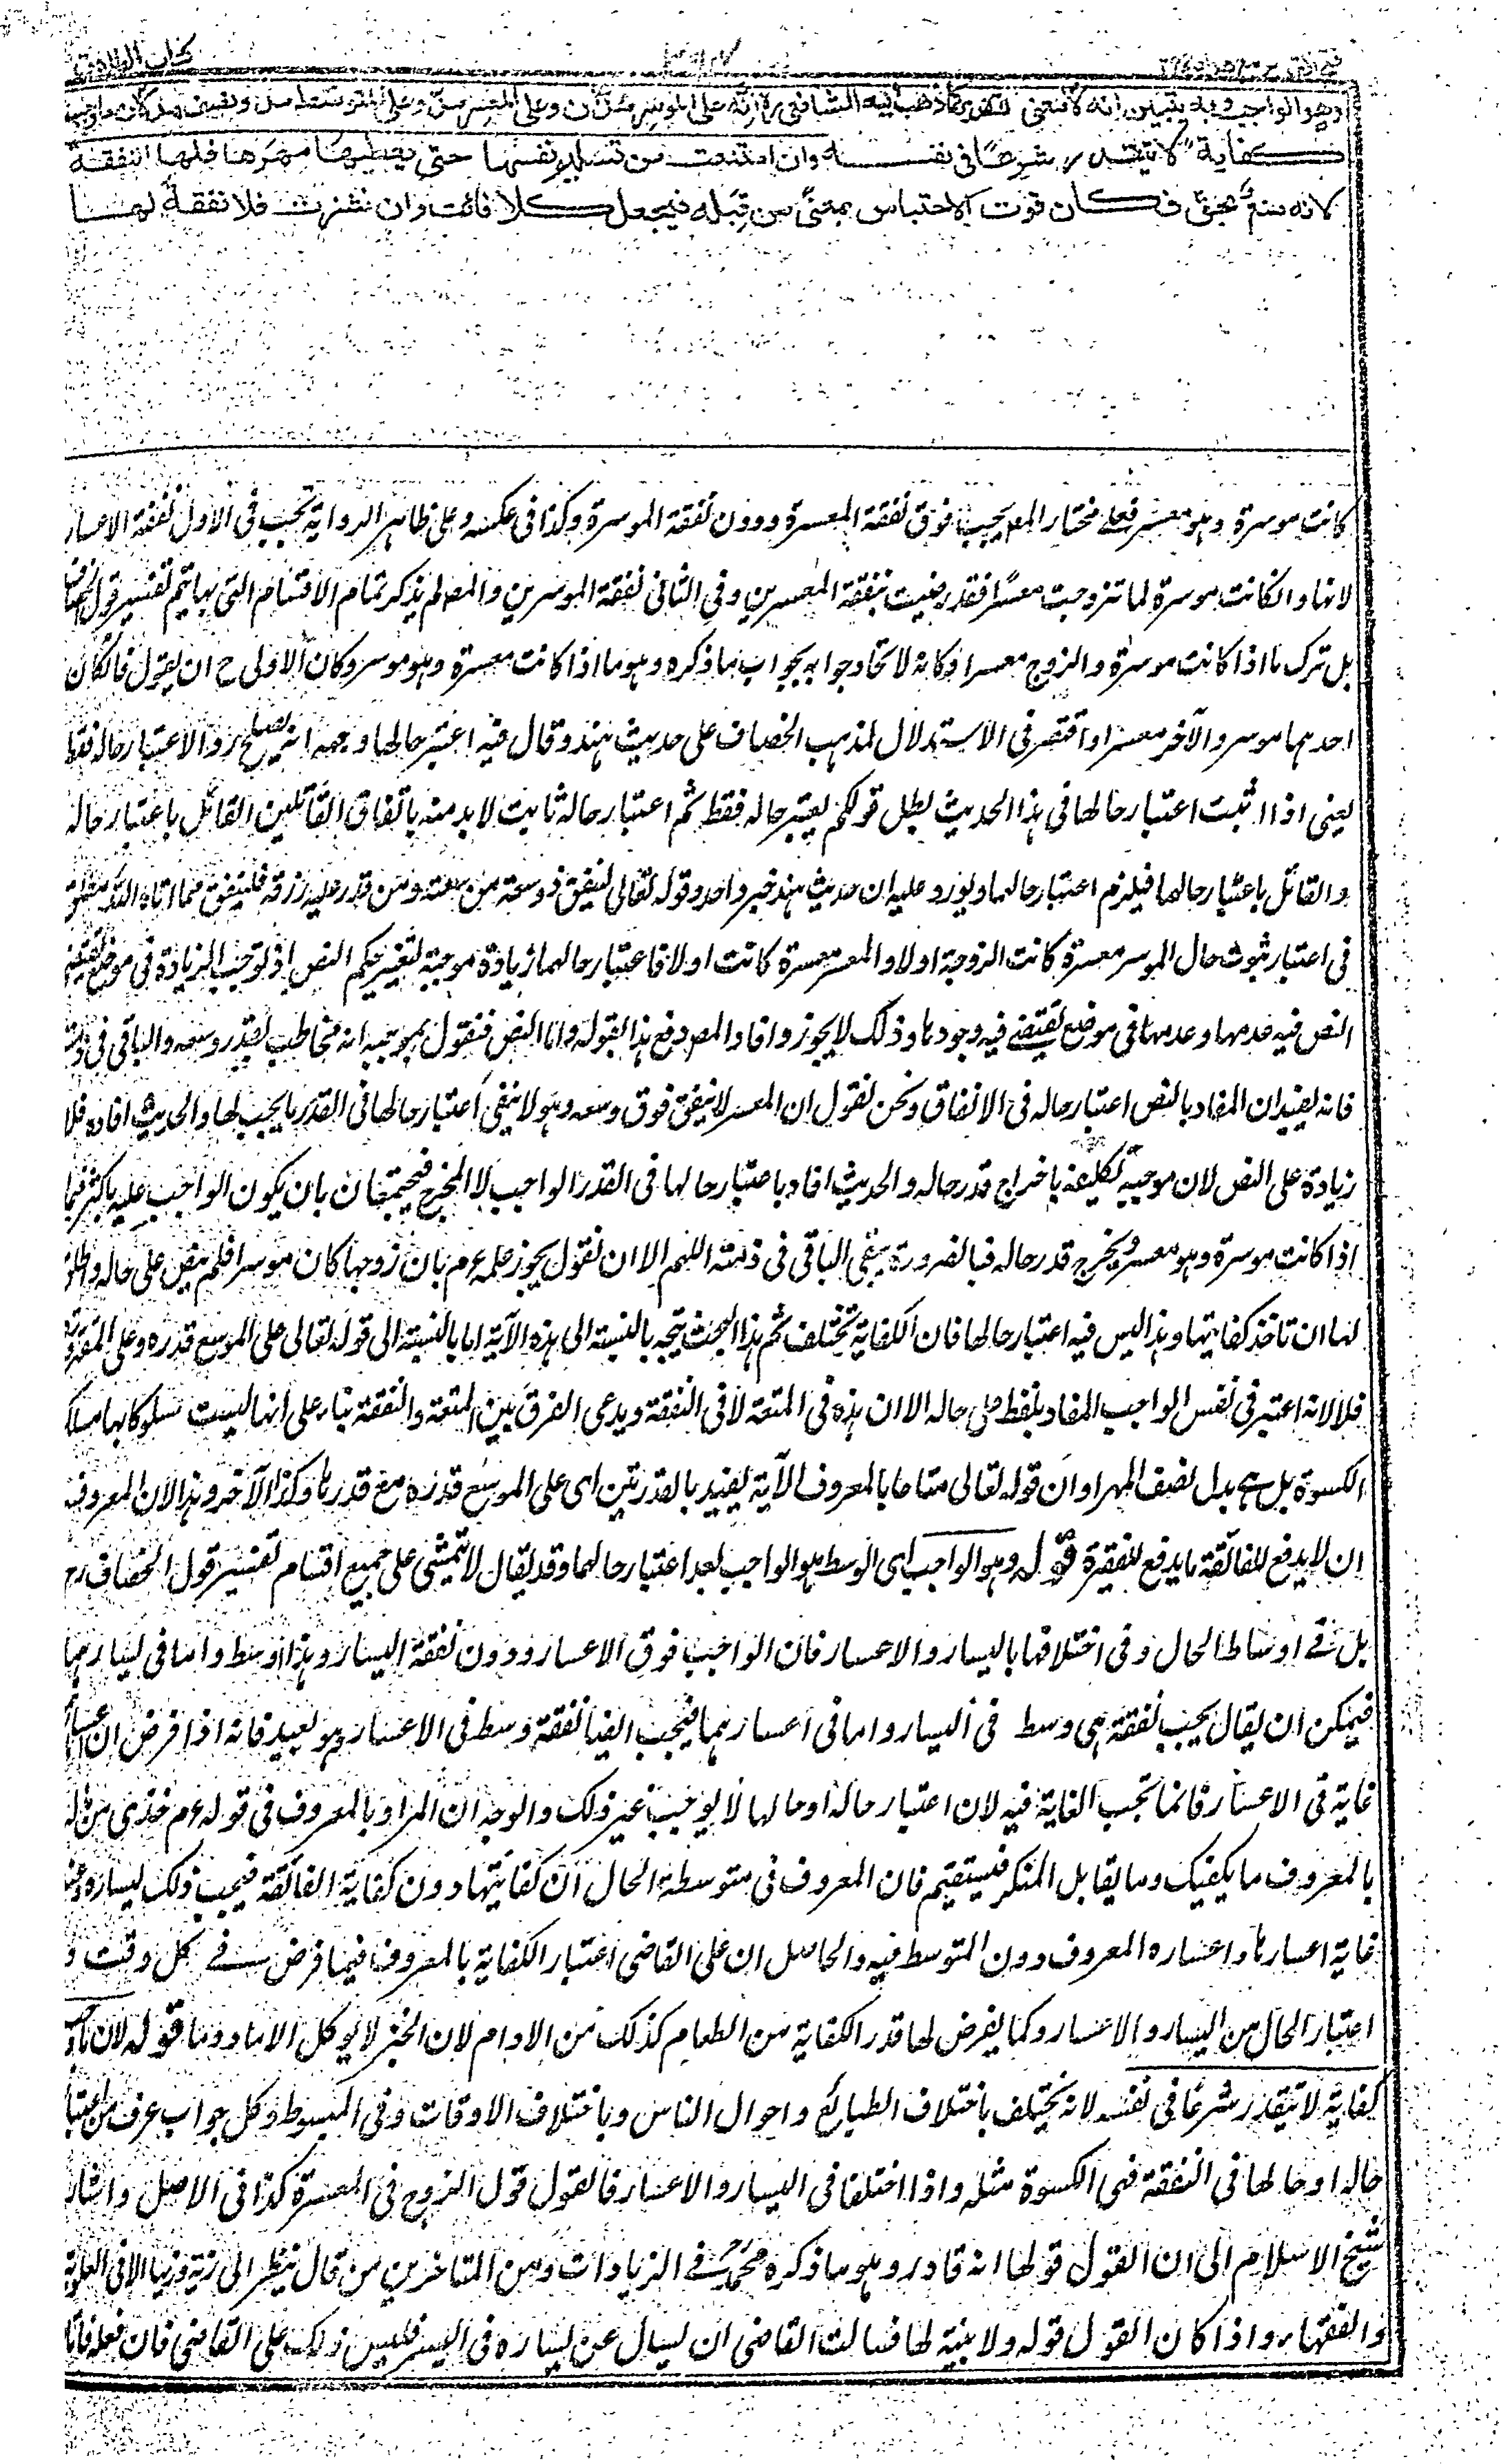 كتاب الطلاق
وهو الواجب وبه يتبين انه لا معنى للتقدير كما ذهب اليه الشافعي رح انه على الموسر مدان وعلى المعسر مد وعلى المتوسط مد ونصف مد لان ما وجب
كفاية لا يتقدر شرعا في نفسه وان امتنعت من تسليم نفسها حتى يعطيها مهرها فلها النفقة
لانه منع بحق فكان فوت الاحتباس بمعنى من قبله فيجعل كلا فائت وان نشزت فلا نفقة لها
كانت موسرة وهو معسر فعلى مختار المص يجب فوق نفقة المعسرة ودون نفقة الموسرة وكذا في عكسه وعلى ظاهر الرواية تجب في الاول نفقة الاعسار
لانها وانكانت موسرة لما تزوجت معسرا فقد رضيت بنفقة المعسرين وفي الثاني نفقة الموسرين والمص لم يذكر تمام الاقسام التي بها يتم تفسير قول الخصاف
بل ترك ما اذا كانت موسرة والزوج معسرا وكانه لاتحاد جوابه بجواب ما ذكره وهو ما اذا كانت معسرة وهو موسر وكان الاولى ح ان يقول فان كان
احدهما موسر والآخر معسرا واقتصر في الاستدلال لمذهب الخصاف على حديث هند وقال فيه اعتبر حالها وجهه انه يصلح ردا لاعتبار حاله فقط
يعني اذا اثبت اعتبار حالها في هذا الحديث بطل قولكم يعتبر حاله فقط ثم اعتبار حاله ثابت لا بد منه باتفاق القائلين القائل باعتبار حاله
والقائل باعتبار حالهما فيلزم اعتبار حالهما ويورد عليه ان حديث هند خبر واحد وقوله تعالى لينفق ذو سعة من سعته ومن قدر عليه رزقه فلينفق مما اتاه الله
في اعتبار ثبوت حال الموسر معسرة كانت الزوجة اولا والمعسر معسرة كانت اولا فاعتبار حالهما زيادة موجبة لتغيير حكم النص اذ توجب الزيادة في موضع يقتضي
النص فيه عدمها وعدمها في موضع يقتضي فيه وجودها وذلك لا يجوز وافاد المص دفع هذا بقوله واما النص فنقول بموجبه انه مخاطب بقدر وسعه والباقي في ذمته
فانه يفيد ان المفاد بالنص اعتبار حاله في الانفاق ونحن نقول ان المعسر لا ينفق فوق وسعه وهو لا ينفي اعتبار حالها في القدر ما يجب لها والحديث افاده فلا
زيادة على النص لان موجبه تكليفه باخراج قدر حاله والحديث افاد باعتبار حالها في القدر الواجب لا المخرج فيجتمعان بان يكون الواجب عليه باكثر فيما
اذا كانت موسرة وهو معسر ويخرج قدر حاله فبالضرورة يبقى الباقي في ذمته اللهم الا ان نقول يجوز علمه عم بان زوجها كان موسرا فلم ينص على حاله واطلق
لها ان تاخذ كفايتها وهذا ليس فيه اعتبار حالها فان الكفاية تختلف ثم هذا البحث يتجه بالنسبة الى هذه الآية اما بالنسبة الى قوله تعالى على الموسع قدره وعلى المقتر قدره
فلا لانه اعتبر في نفس الواجب المفاد بلفظ على حاله الا ان هذه في المتعة لا في النفقة ويدعى الفرق بين المتعة والنفقة بناء على انها ليست مسلوكا بها مسلك
الكسوة بل هي بدل نصف المهر او ان قوله تعالى متاعا بالمعروف الآية يفيد بالقدرتين اى على الموسع قدره مع قدرها وكذا الآخر وهذا لان المعروف
ان لا يدفع للفائقة ما يدفع للفقيرة قوله وهو الواجب اى الوسط هو الواجب بعد اعتبار حالهما وقد يقال لا يتمشى على جميع اقسام تفسير قول الخصاف رح
بل في اوساط الحال وفي اختلافها باليسار والاعسار فان الواجب فوق الاعسار ودون نفقة اليسار وهذا وسط واما في يسارهما
فيمكن ان يقال يجب نفقة هي وسط في اليسار واما في اعسارهما فيجب ايضا نفقة وسط في الاعسار وهو بعيد فانه اذا فرض ان اعسارهما
غاية في الاعسار فانما تجب الغاية فيه لان اعتبار حاله او حالها لا يوجب غير ذلك والوجه ان المراد بالمعروف في قوله عم خذى من ماله
بالمعروف ما يكفيك وما يقابل المنكر فيستقيم فان المعروف في متوسطة الحال ان كفايتها دون كفاية الفائقة فيجب ذلك ليساره وعند
غاية اعسارها واعساره المعروف دون المتوسط فيه والحاصل ان على القاضي اعتبار الكفاية بالمعروف فيما فرض في كل وقت و
اعتبار الحال من اليسار والاعسار وكما يفرض لها قدر الكفاية من الطعام كذلك من الادام لان الخبز لا يوكل الا مادوما قوله لان ما وجب
كفاية لا يتقدر شرعا في نفسه لانه يختلف باختلاف الطبائع واحوال الناس وباختلاف الاوقات وفي المبسوط وكل جواب عرف من اعتبار
حاله او حالها في النفقة ففي الكسوة مثله واذا اختلفا في اليسار والاعسار فالقول قول الزوج في العسرة كذا في الاصل واشار
شيخ الاسلام الى ان القول قولها انه قادر وهو ما ذكره محمد رح في الزيادات ومن المتاخرين من قال ينظر الى زيه وزيها الا في العلوية
والفقهاء واذا كان القول قوله ولا بينة لها فسالت القاضي ان يسال عن يساره في السر فليس ذلك على القاضي فان فعله فاتاه